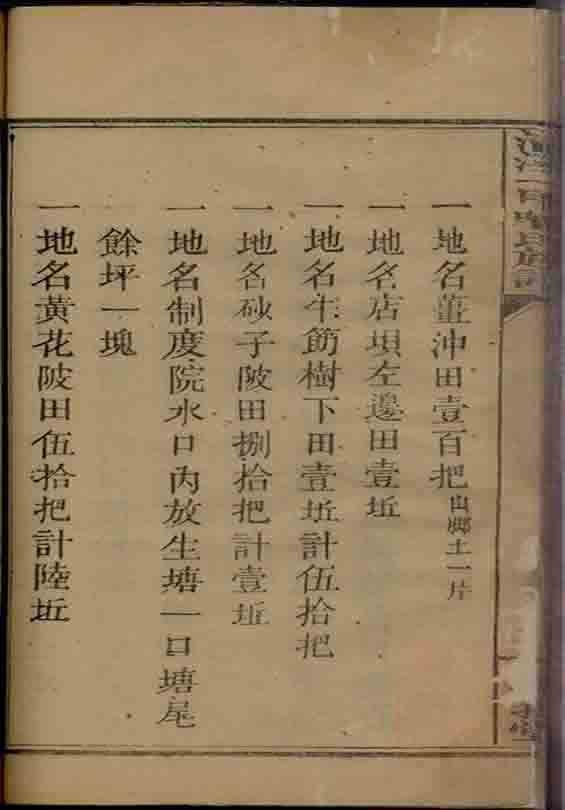 一地名薑沖田壹百把山鄉土一片
一地名店垻左邊田壹坵
一地名牛筋樹下田壹坵計伍拾把
一地名砂子陂田捌拾把計壹坵
一地名制度院水口內放生塘一口塘尾
餘坪一塊
一地名黃花陂田伍拾把計陸坵